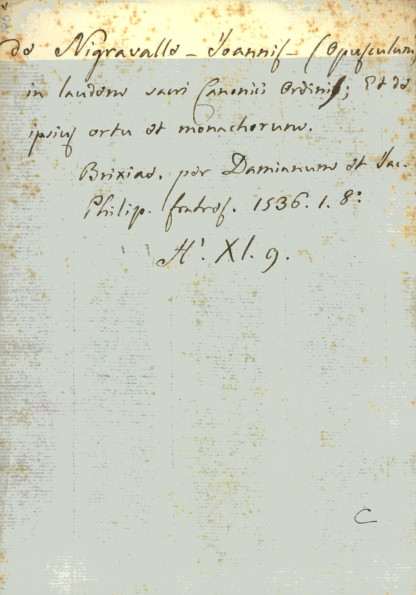 de Nigravalle - Joannis - (Opusculum)
in laudem sacri Canonici Ordinis; Et de
ipsius ortu et monachorum.
Brixiae. per Damianum et Jac.
Philip. fratres. 1536. 1. 8:
XI. 9.
C